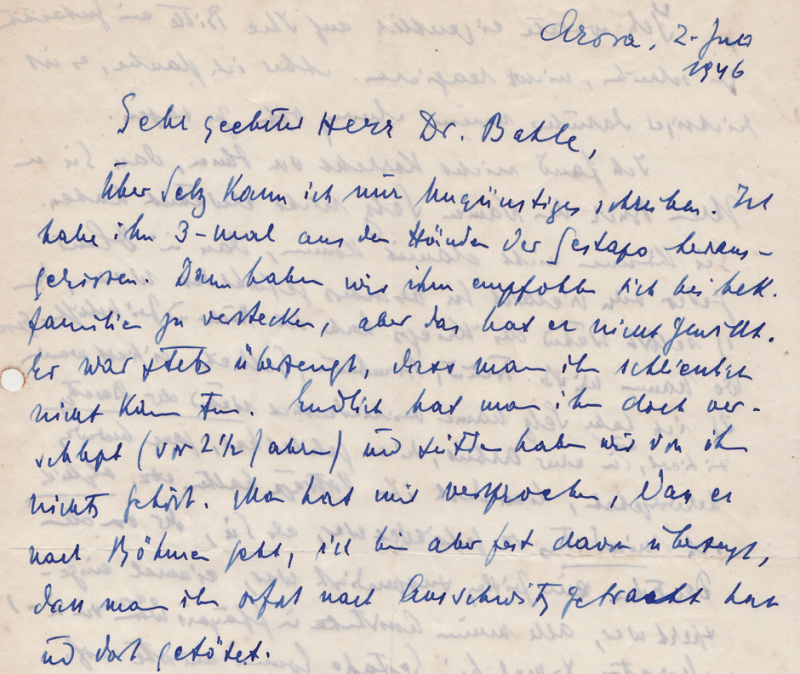 Arosa, 2. Juli
1946
Sehr geehrter Herr Dr. Bahle,
Über Selz kann ich nur Ungünstiges schreiben. Ich
habe ihn 3-mal aus den Händen der Gestapo heraus-
gerissen. Dann haben wir ihm empfohlen sich bei bek.
Familien zu verstecken, aber das hat er nicht gewollt.
Er war stets überzeugt, dass man ihm schliesslich
nichts kann tun. Endlich hat man ihn doch ver-
schleppt (vor 2½ Jahren) und seitdem haben wir von ihm
nichts gehört. Man hat mir versprochen, dass er
nach Böhmen geht, ich bin aber fest davon überzeugt,
dass man ihn sofort nach Ausschwitz gebracht hat
und dort getötet.